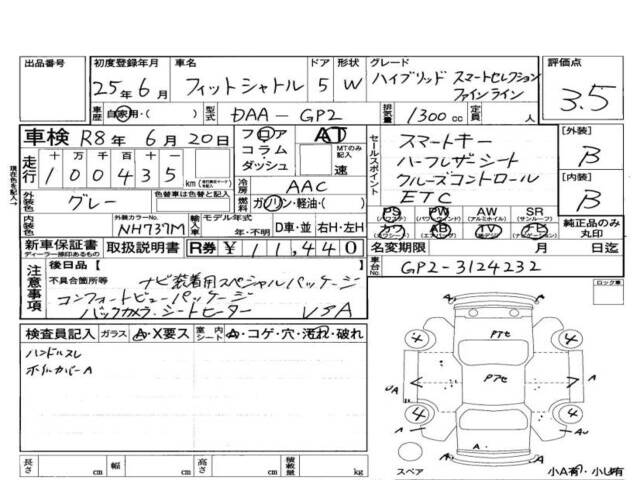 出品番号
初度登録年月 25年6月
車名 フィットシャトル
ドア 5
形状 W
グレード ハイブリッド スマートセレクション
ファインライン
評価点 3.5
車歴 自家用・( )
型式 DAA-GP2
排気量 1300cc
定員 人
車検 R8年 6月 20日
フロア
コラム・
ダッシュ
AT
MTのみ記入
速
セールスポイント
スマートキー
ハーフレザーシート
クルーズコントロール
ETC
[外装] B
[内装] B
走行 十 万 千 百 十 一
100435 km
冷房 AAC
外装色 グレー
色替車は色替と記入
燃料 ガソリン・軽油・( )
PS PW AW SR
(パワステ) (パワーウインド) (アルミホイル) (サンルーフ)
カワ AB TV ナビ
(カワシート) (エアバッグ) (テレビ) (ナビゲーション)
純正品のみ丸印
内装色
外装カラーNo. NH737M
輸入車
モデル年式 年・不明
D車・並
右H・左H
名変期限 月 日迄
新車保証書
ディーラー捺印あるもの
取扱説明書
R券 ¥11,440
車台No. GP2-3124232
注意事項
後日品[ ]
不具合箇所等
ナビ装着用スペシャルパッケージ
コンフォートビューパッケージ
バックカメラ・シートヒーター
VSA
ロック車
検査員記入 ガラス A・X要ス 室内シート A・コゲ・穴・汚れ・破れ
ハンドルスレ
ホイルカバーA
P7セ
P7セ
4 4
UA A A
4 4
A A AU
A
スペア
小A有・小U有
長さ cm 幅 cm 高さ cm 積載量 kg
現在色を記入→